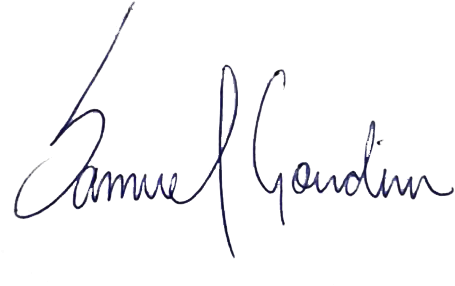 Samuel Gondim